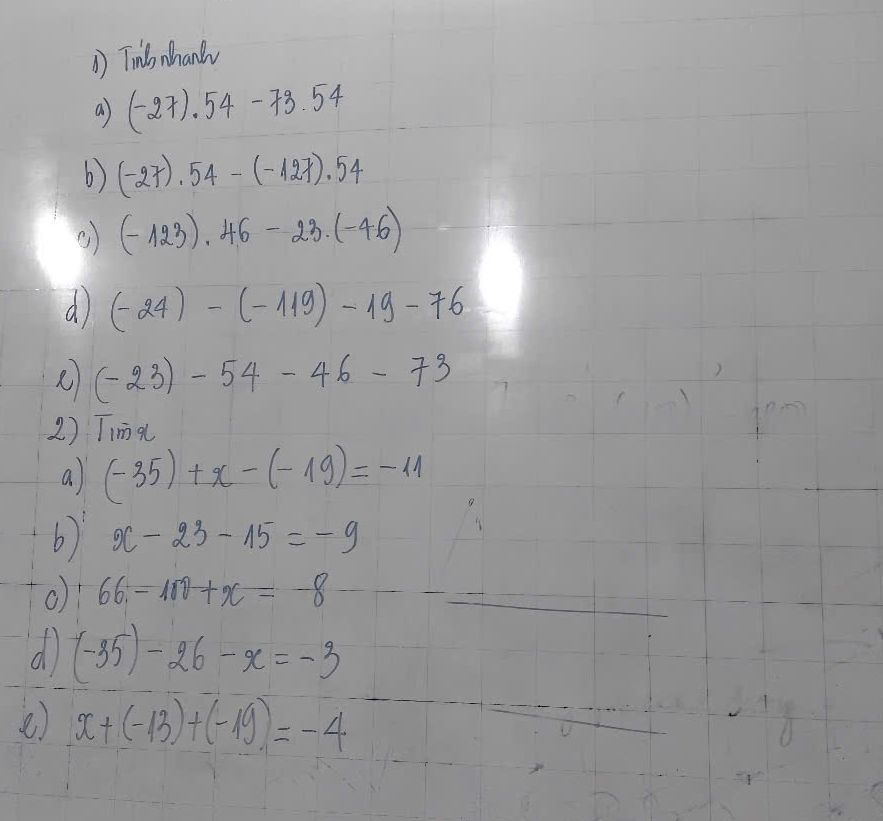 1) Tính nhanh
a) (-27).54 - 73.54
b) (-27).54 - (-127).54
c) (-123).46 - 23.(-46)
d) (-24) - (-119) - 19 - 76
e) (-23) - 54 - 46 - 73
2) Tìm x
a) (-35) + x - (-19) = -11
b) x - 23 - 15 = -9
c) 66 - 100 + x = 8
d) (-35) - 26 - x = -3
e) x + (-13) + (-19) = -4